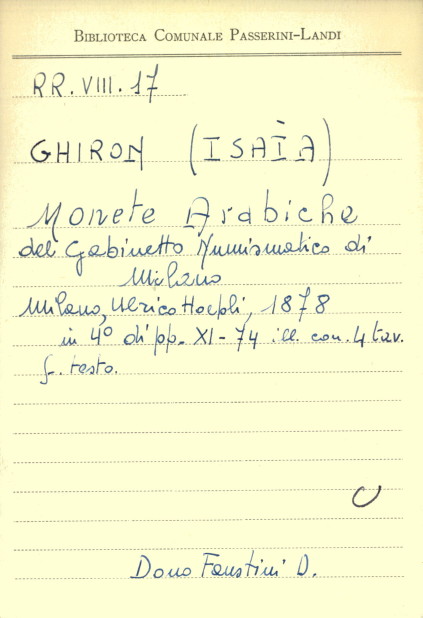 BIBLIOTECA COMUNALE PASSERINI-LANDI
RR. VIII. 17
GHIRON (ISAÌA)
Monete Arabiche
del Gabinetto Numismatico di
Milano
Milano, Ulrico Hoepli, 1878
in 4º di pp. XI-74 ill. con. 4 tav.
f. testo.
Dono Faustini D.